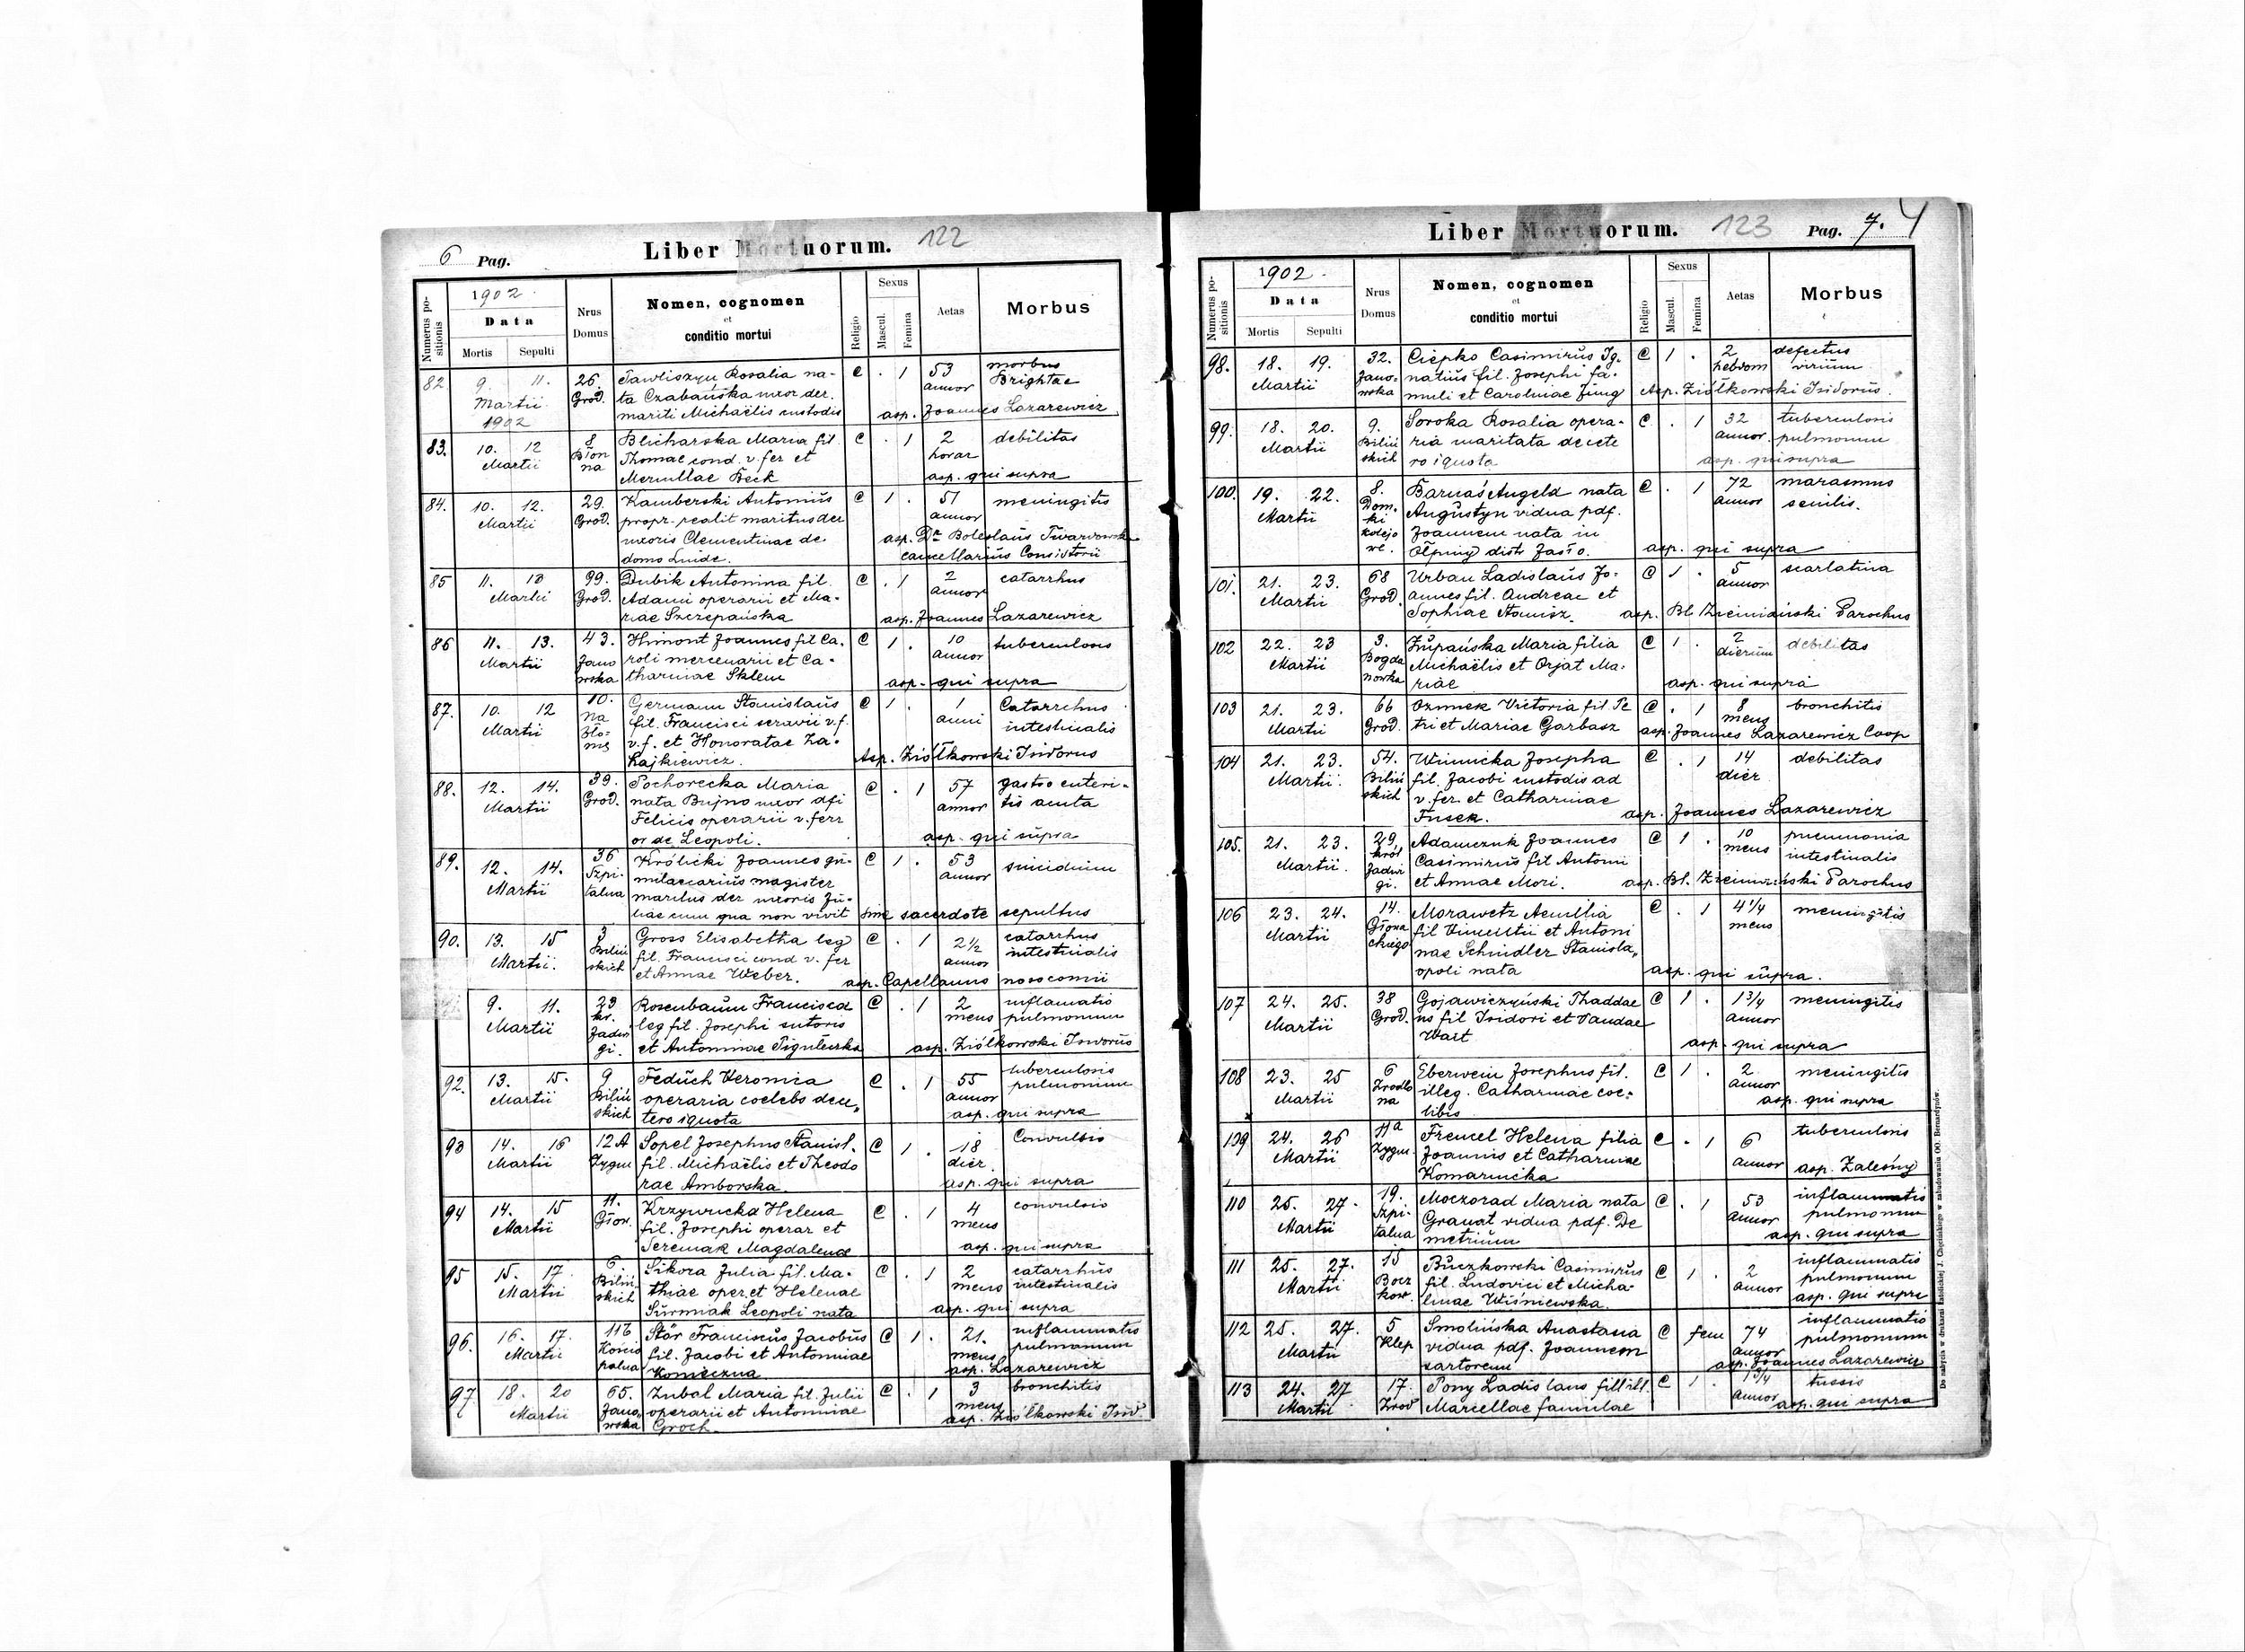 6 Pag. Liber Mortuorum. 122
Numerus positionis
1902
Data
Mortis Sepulti
Nrus Domus
Nomen, cognomen
et
conditio mortui
Religio
Sexus
Mascul. Femina
Aetas
Morbus
82 9. 11. 26. Pawliszyn Rosalia na- C . 1 53 morbus
Martii Grod. ta Czabańska uxor der. annor Brightae
1902 mariti Michaëlis custodis asp. Joannes Lazarewicz
83. 10. 12 8 Blicharska Maria fil. C . 1 2 debilitas
Martii Błon Thomae cond. v. fer et horar
na Meruллae Beck asp. qui supra
84. 10. 12. 29. Kamberski Antonius C 1 . 51 meningitis
Martii Grod. propr. realit maritus der annor
uxoris Clementinae de asp. Dr Boleslaus Twardowski
domo Linde. cancellarius Consistorii
85 11. 13 99. Dubik Antonina fil. C . 1 2 catarrhus
Martii Grod. Adami operarii et Ma- annor
riae Szczepańska asp. Joannes Lazarewicz
86 11. 13. 43. Himont Joannes fil Ca- C 1 . 10 tuberculosis
Martii Jano roli mercenarii et Ca- annor
wska tharinae Sklem asp. qui supra
87. 10. 12 10. Germann Stanislaus C 1 . 1 Catarrhus
Martii Na fil. Francisci servi v.f. anni intestinalis
bło- v.f. et Honoratae Za-
nie kajkiewicz. Asp. Ziółkowski Isidorus
88. 12. 14. 39. Pochorecka Maria C . 1 57 gastro enteri-
Martii Grod. nata Bujno uxor dfi annor tis acuta
Felicis operarii v. ferr
or de Leopoli. asp. qui supra
89. 12. 14. 36 Królicki Joannes C 1 . 53 suicidium
Martii Szpi- magister annor
talna maritus der uxoris Ju-
liae cum qua non vivit sine sacerdote sepultus
90. 13. 15 3 Gross Elisabetha leg C . 1 2½ catarrhus
Martii. Biliń fil. Francisci cond v. fer annor intestinalis
skich et Annae Weber. asp. Capellanus nosocomii
9. 11. 29 Rosenbaum Francisca C . 1 2 inflamatio
Martii kr. leg fil. Josephi sutoris mens pulmonum
Jadwi et Antoninae Pigulewska
gi. asp. Ziółkowski Isidorus
92. 13. 15. 9 Feduch Veronica C . 1 55 tuberculosis
Martii Biliń operaria coelebs de ce- annor pulmonum
skich tero iquota asp. qui supra
93 14. 16 12A Sopel Josephus Stanisl. C 1 . 18 Convulsio
Martii Zygm fil. Michaëlis et Theodo dier.
rae Amborska. asp. qui supra
94 14. 15 11. Krzywicka Helena C . 1 4 convulsio
Martii Głow. fil. Josephi operar et mens
Seremak Magdalenae asp. qui supra
95 15. 17 6. Sikora Julia fil. Ma- C . 1 2 catarrhus
Martii Biliń thiae oper. et Helenae mens intestinalis
skich Surmiak Leopoli nata asp. qui supra
96. 16. 17. 116 Stör Franciscus Jacobus C 1 . 21. inflammatio
Martii Kościo fil. Jacobi et Antoninae mens pulmonum
palna Konieczna asp. Lazarewicz
97 18. 20 65. Zubal Maria fil. Julii C . 1 3 bronchitis
Martii Jano operarii et Antoninae mens
wska Groch. asp. Ziółkowski Isid.
Liber Mortuorum. 123 Pag. 7. 4
Numerus positionis
1902.
Data
Mortis Sepulti
Nrus Domus
Nomen, cognomen
et
conditio mortui
Religio
Sexus
Mascul. Femina
Aetas
Morbus
98. 18. 19. 32. Ciepko Casimirus Ig- C 1 . 2 defectus
Martii Jano- natius fil. Josephi fa- hebdom virium
wska muli et Carolinae Jung Asp. Ziółkowski Isidorus.
99. 18. 20. 9. Soroka Rosalia opera- C . 1 32 tuberculosis
Martii Biliń ria maritata de cete annor. pulmonum
skich ro iquota asp. qui supra
100. 19. 22. 8. Barnaś Angela nata C . 1 72 marasmus
Martii Dom. Augustyn vidua pdf. annor senilis.
ki Joannem nata in
kolejo Ołpiny distr Jasło. asp. qui supra
we.
101. 21. 23. 68 Urban Ladislaus Jo- C 1 . 5 scarlatina
Martii Grod. annes fil. Andreae et annor
Sophiae Stanisz. asp. Bl. Parochus
102 22. 23 3. Żupańska Maria filia C 1 . 2 debilitas
Martii Bogda Michaëlis et Orjat Ma- dierum
nowka riae asp. qui supra
103 21. 23. 66 Ozimek Victoria fil Pe C . 1 8 bronchitis
Martii Grod. tri et Mariae Garbasz mens
asp. Joannes Lazarewicz Coop
104 21. 23. 54. Winnicka Josepha C . 1 14 debilitas
Martii. Biliń fil. Jacobi custodis ad dier
skich v. fer. et Catharinae
Fusek. asp. Joannes Lazarewicz
105. 21. 23. 29. Adamczuk Joannes C 1 . 10 pneumonia
Martii. król Casimirus fil Antoni mens intestinalis
Jadwi et Annae Mori.
gi. asp. Bl. Parochus
106 23. 24. 14. Morawetz Aemillia C . 1 4¼ meningitis
Martii Głowa fil Vincentii et Antoni mens
ckiego nae Schindler Stanisla-
opoli nata asp. qui supra.
107 24. 25. 38 Gojawiczyński Thaddae C 1 . 1¾ meningitis
Martii Grod. us fil Isidori et Vandae annor
Wart asp. qui supra
108 23. 25 6 Eberwein Josephus fil. C 1 . 2 meningitis
Martii Zrodla illeg. Catharinae coe- annor
na libis asp. qui supra
109 24. 26 11a Frencel Helena filia C . 1 6 tuberculosis
Martii Zygm. Joannis et Catharinae annor
Komarnicka asp. Zaleśny
110 25. 27. 19. Moczorad Maria nata C . 1 53 inflammatio
Martii Szpi- Granat vidua pdf. De annor pulmonum
talna metrium asp. qui supra
111 25. 27. 15 Buczkowski Casimirus C 1 . 2 inflammatio
Martii Bocz fil. Ludovici et Micha- annor pulmonum
kow. linae Wiśniewska. asp. qui supra
112 25. 27. 5 Smolińska Anastasia C fem 74 inflammatio
Martii Klep vidua pdf. Joannem annor pulmonum
sartorem asp. Joannes Lazarewicz
113 24. 27 17. Pony Ladislaus fil ill. C 1 . 1¾ tussis
Martii Zrod Marcellae famulae annor asp. qui supra
Do nabycia w drukarni katolickiej J. Chęcińskiego w zabudowaniu OO. Bernardynów.